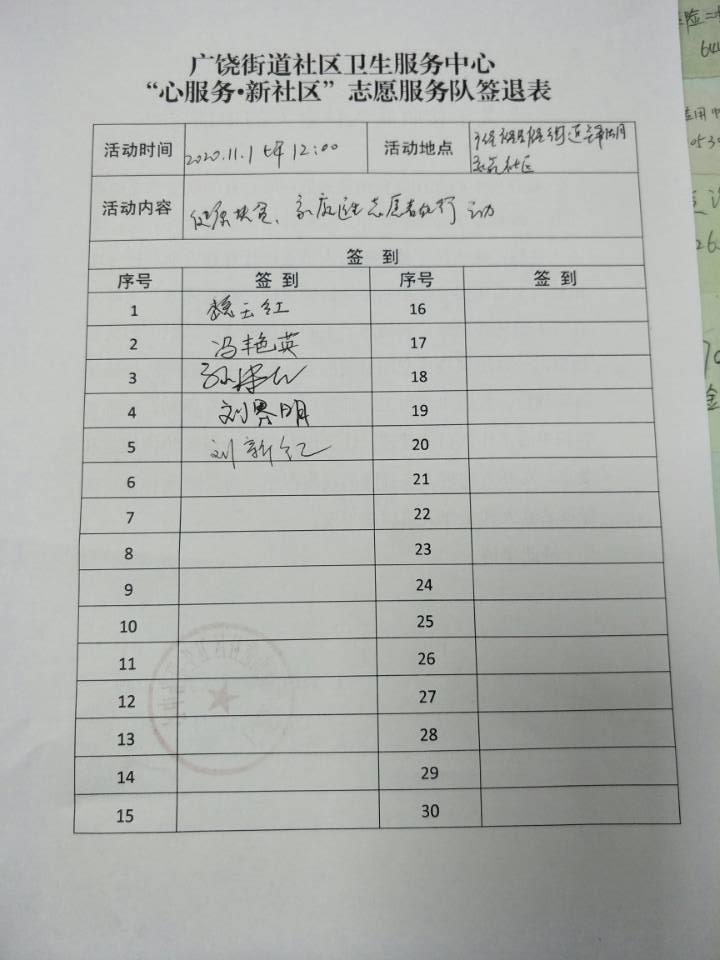 广饶街道社区卫生服务中心
“心服务•新社区”志愿服务队签退表
活动时间 2020.11.1 上午 12:00 活动地点 街道
社区
活动内容 健康扶贫、家庭医生志愿者在行动
签 到
序号 签 到 序号 签 到
1 魏云红 16
2 冯艳英 17
3 18
4 刘景明 19
5 刘新红 20
6 21
7 22
8 23
9 24
10 25
11 26
12 27
13 28
14 29
15 30